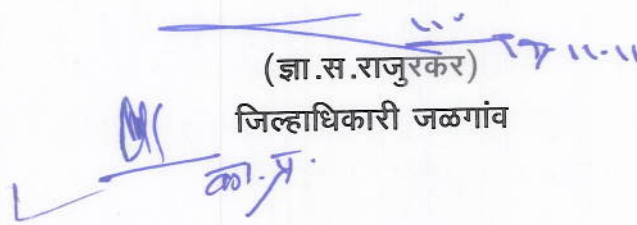 (ज्ञा.स.राजुरकर)
जिल्हाधिकारी जळगांव
का.प्र.